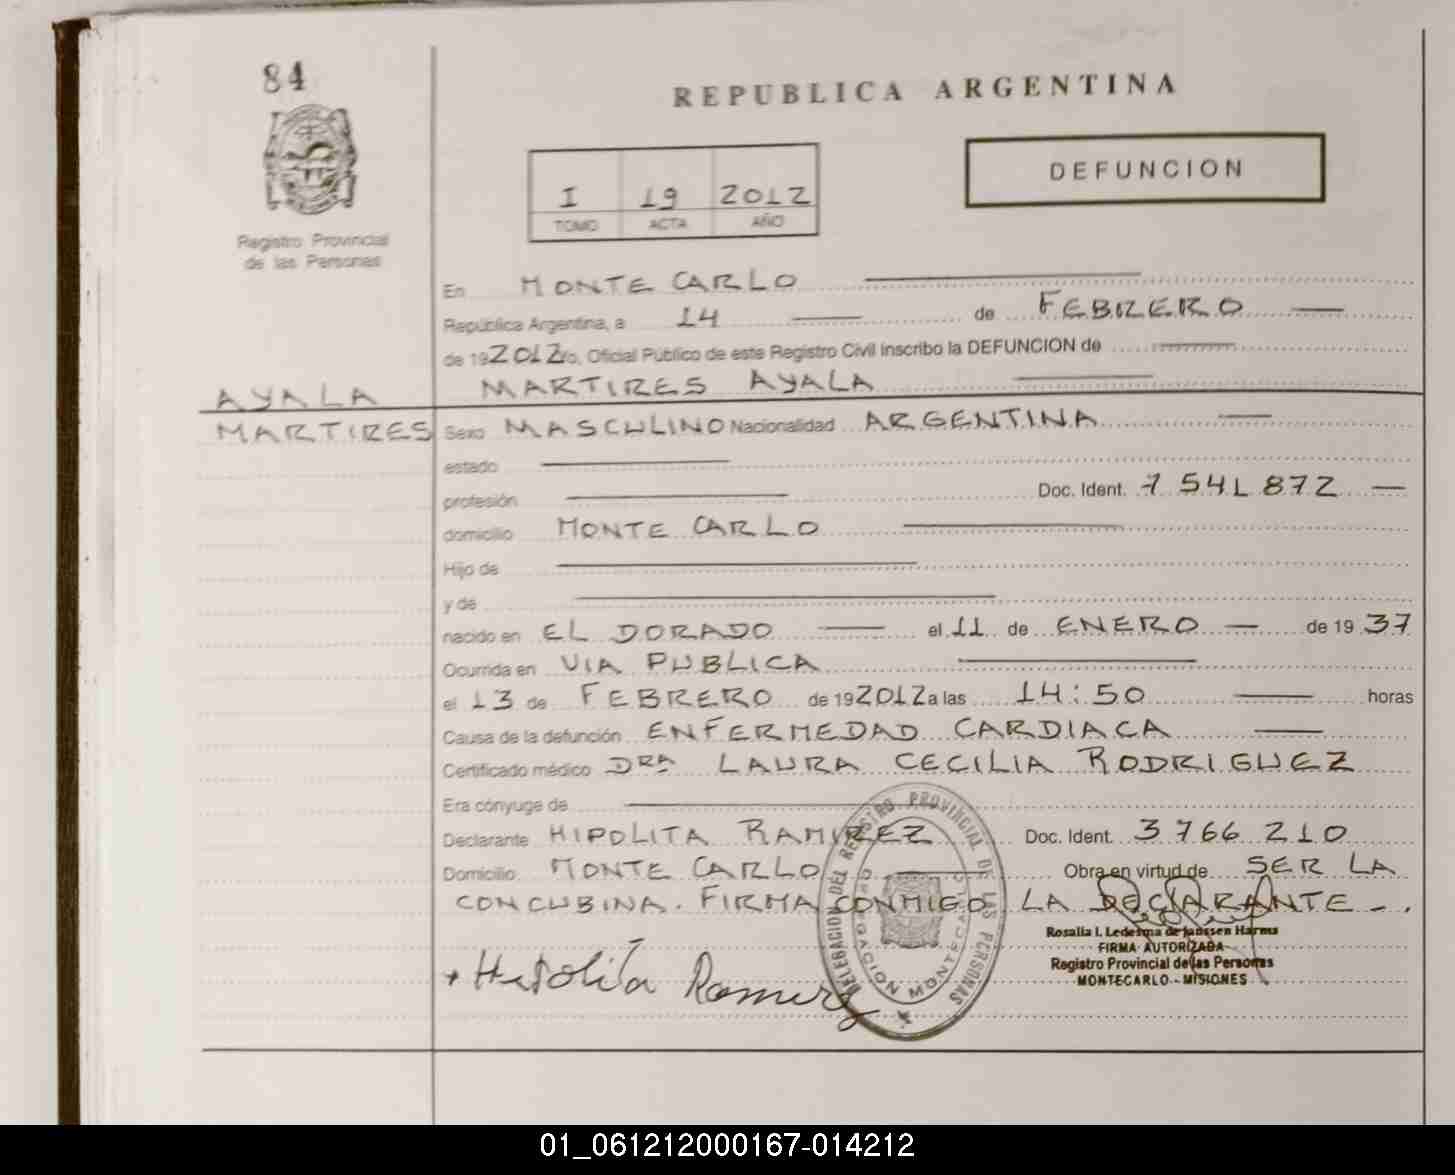 84
REPUBLICA ARGENTINA
DEFUNCION
I 19 2012
TOMO ACTA AÑO
Registro Provincial
de las Personas
En MONTE CARLO
República Argentina, a 14 de FEBRERO
de 19 2012 yo, Oficial Público de este Registro Civil inscribo la DEFUNCION de
AYALA MARTIRES AYALA
MARTIRES Sexo MASCULINO Nacionalidad ARGENTINA
estado
profesión Doc. Ident. 7 541 872
domicilio MONTE CARLO
Hijo de
y de
nacido en EL DORADO el 11 de ENERO de 19 37
Ocurrida en VIA PUBLICA
el 13 de FEBRERO de 19 2012 a las 14:50 horas
Causa de la defunción ENFERMEDAD CARDIACA
Certificado médico DRA LAURA CECILIA RODRIGUEZ
Era cónyuge de
Declarante HIPOLITA RAMIREZ Doc. Ident. 3 766 210
Domicilio MONTE CARLO Obra en virtud de SER LA
CONCUBINA. FIRMA CONMIGO LA DECLARANTE -.
Rosalia I. Ledesma de Janssen Harms
FIRMA AUTORIZADA
Registro Provincial de las Personas
MONTECARLO - MISIONES
Hipolita Ramirez
DELEGACION DEL REGISTRO PROVINCIAL DE LAS PERSONAS
01_061212000167-014212